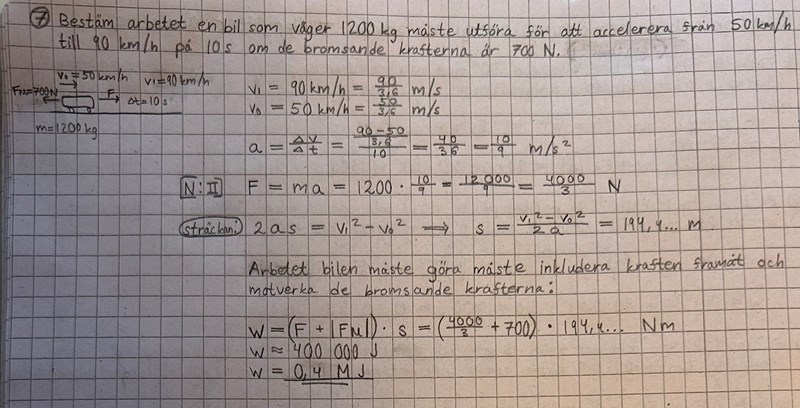 ⑦ Bestäm arbetet en bil som väger 1200 kg måste utföra för att accelerera från 50 km/h
till 90 km/h på 10 s om de bromsande krafterna är 700 N.
v₀ = 50 km/h v₁ = 90 km/h
Fμ = 700N F Δt = 10 s
m = 1200 kg
v₁ = 90 km/h = 90/3,6 m/s
v₀ = 50 km/h = 50/3,6 m/s
a = Δv/Δt = ((90-50)/3,6)/10 = 40/36 = 10/9 m/s²
N:II F = ma = 1200 · 10/9 = 12000/9 = 4000/3 N
sträckan: 2as = v₁² - v₀² → s = (v₁² - v₀²)/2a = 194,4... m
Arbetet bilen måste göra måste inkludera kraften framåt och
motverka de bromsande krafterna:
W = (F + |Fμ|) · s = (4000/3 + 700) · 194,4... Nm
W ≈ 400 000 J
W = 0,4 MJ